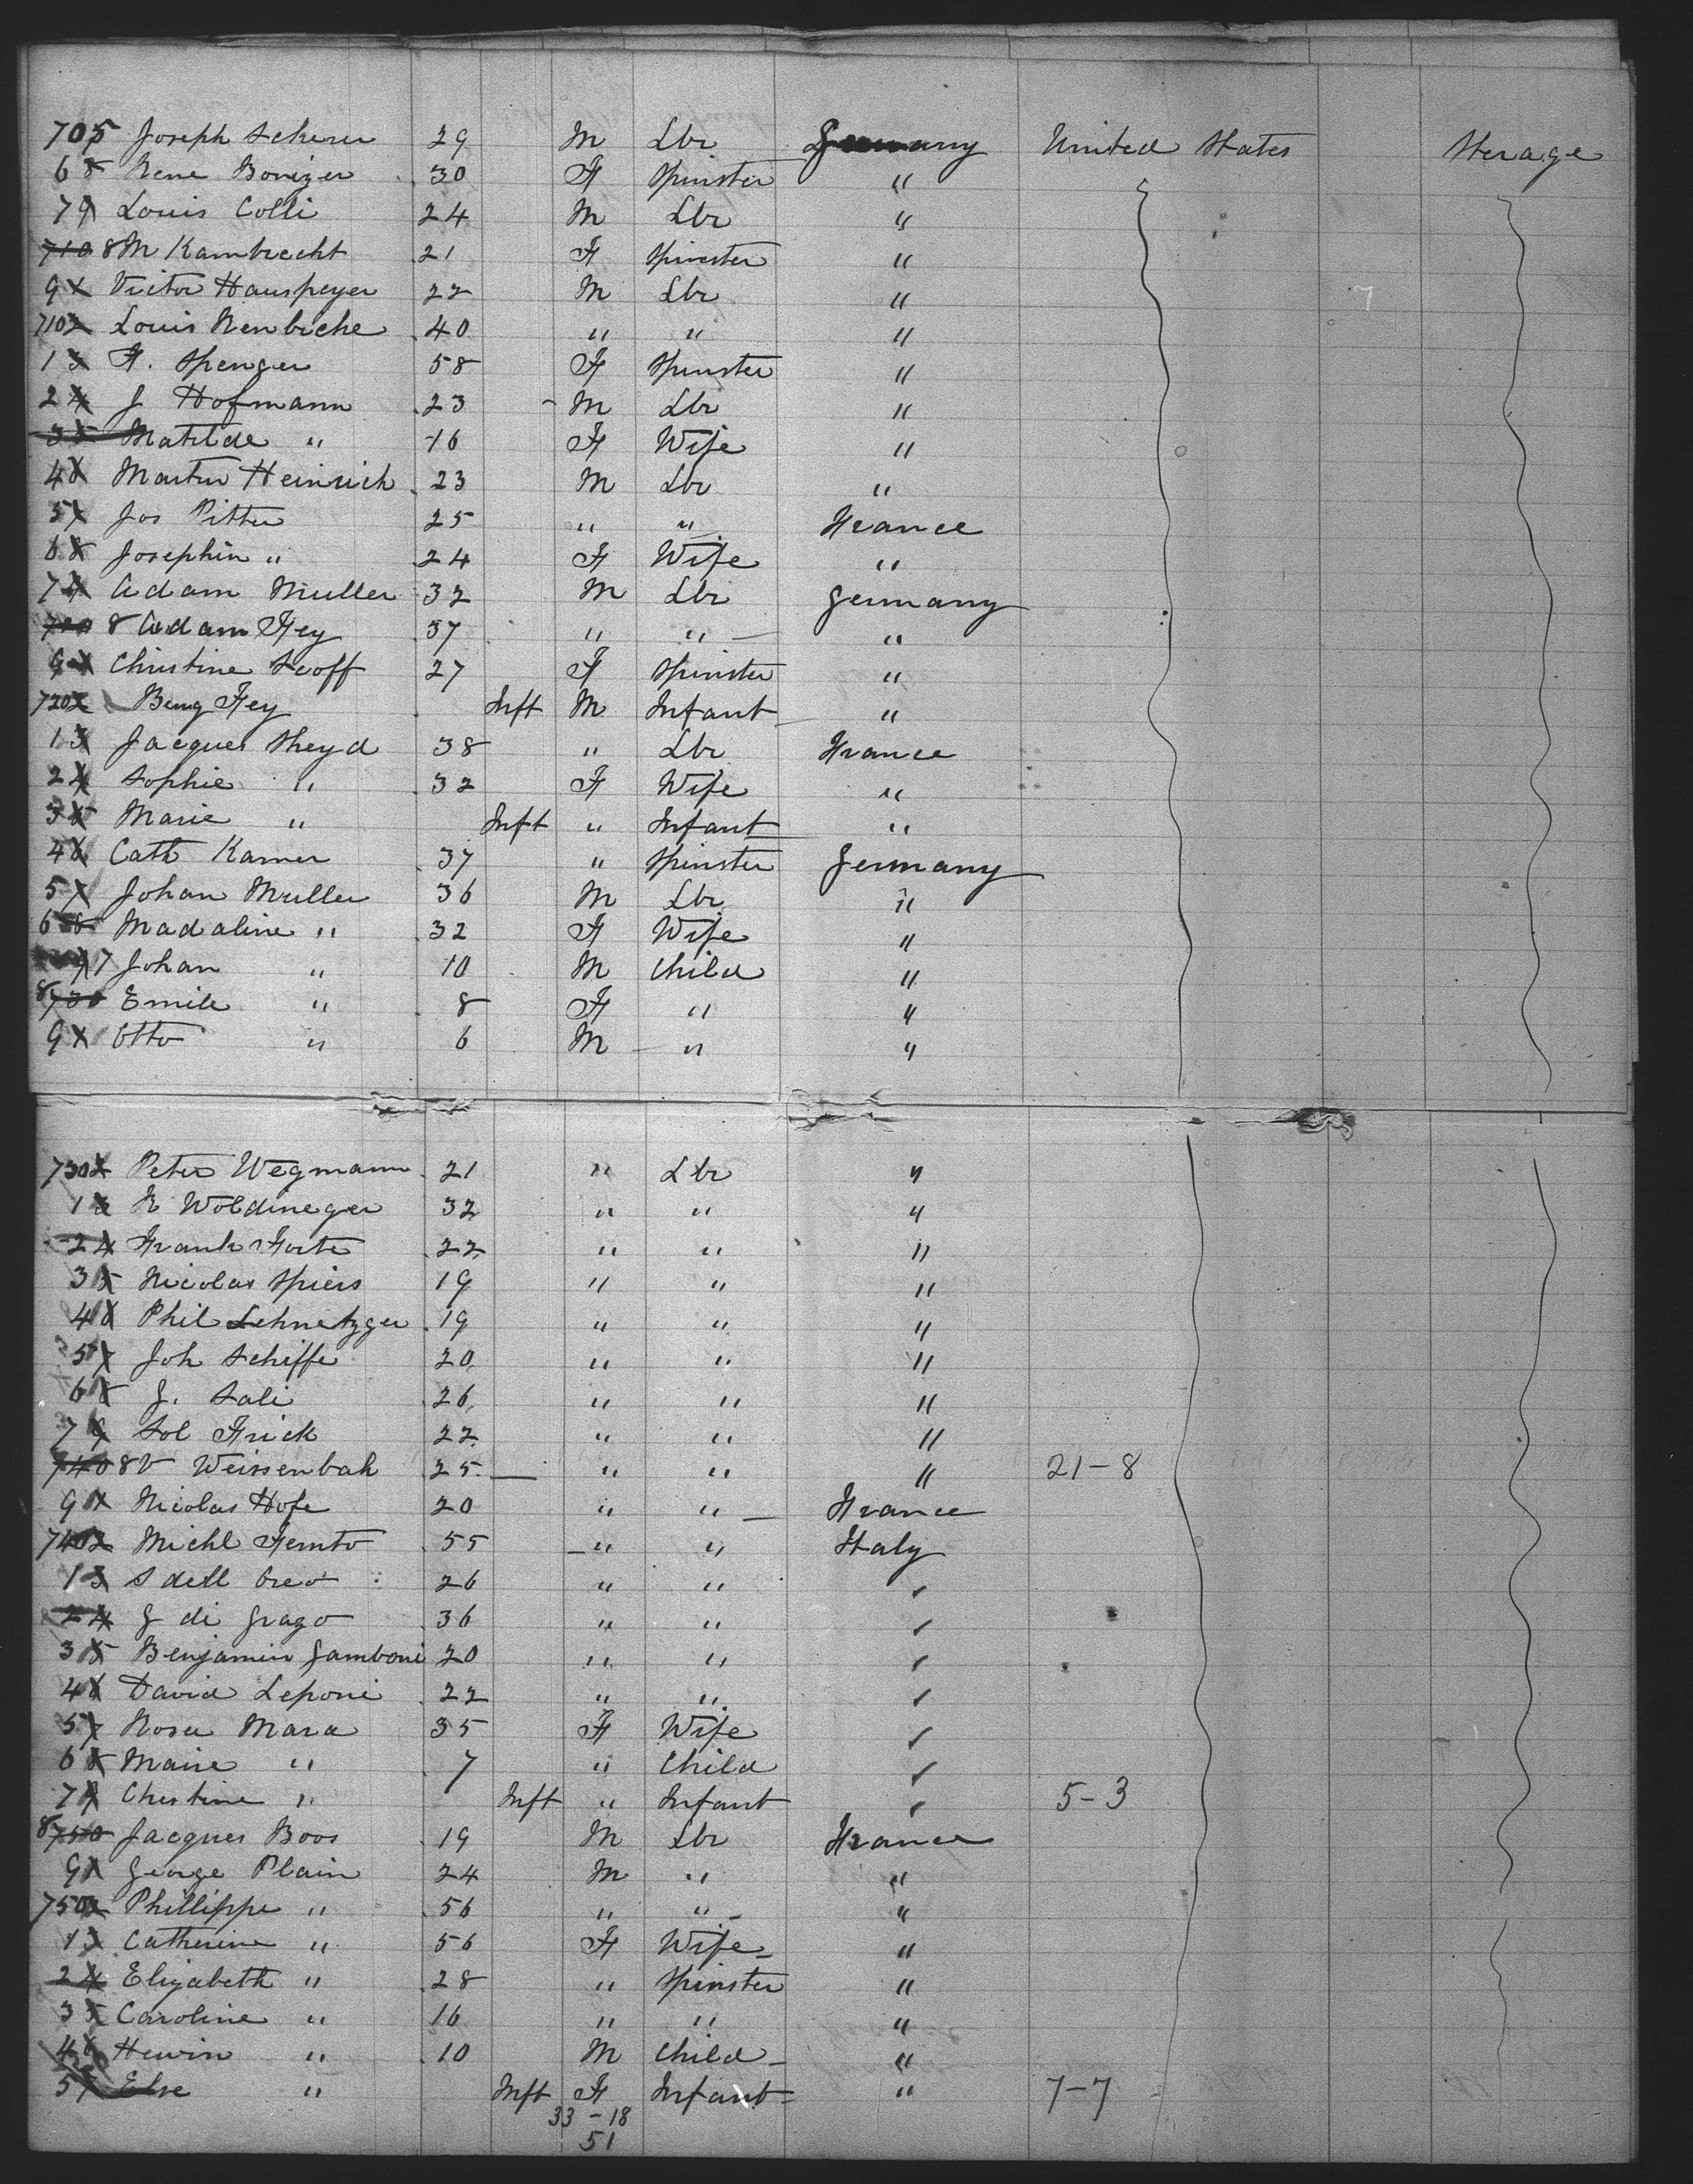 705 Joseph Scherer 29 M Lbr Germany United States Sterage
6 Rene Bonizer 30 F Spinster "
7 Louis Colli 24 M Lbr "
8 M Kambrecht 21 F Spinster "
9 Victor Hauspeyer 22 M Lbr "
710 Louis Nenbiche 40 " " "
1 F. Spenger 58 F Spinster "
2 J Hofmann 23 M Lbr "
3 Matilde " 16 F Wife "
4 Martin Heinrich 23 M Lbr "
5 Jos Pitter 25 " " France
6 Josephin " 24 F Wife "
7 Adam Muller 32 M Lbr Germany
8 Adam Fey 37 " " "
9 Christine Scoff 27 F Spinster "
720 Beng Fey Inft M Infant "
1 Jacques Sheyd 38 " Lbr France
2 Sophie " 32 F Wife "
3 Marie " Inft " Infant "
4 Cath Karner 37 " Spinster Germany
5 Johan Muller 36 M Lbr "
6 Madaline " 32 F Wife "
7 Johan " 10 M Child "
8 Emile " 8 F " "
9 Otto " 6 M " "
730 Peter Wegmann 21 " Lbr "
1 R Woldineger 32 " " "
2 Frank Forte 22 " " "
3 Nicolas Spiers 19 " " "
4 Phil Lehnetzger 19 " " "
5 Joh Schiffe 20 " " "
6 J. Sali 26 " " "
7 Sol Frick 22 " " "
8 V Weissenbah 25 " " " 21-8
9 Nicolas Hofe 20 " " France
740 Michl Femto 55 " " Italy
1 S dell Oreo 26 " "
2 G di Grago 36 " "
3 Benjamin Gamboni 20 " "
4 David Leponi 22 " "
5 Rosa Mara 35 F Wife
6 Marie " 7 " Child
7 Christine " Inft " Infant 5-3
8 Jacques Boos 19 M Lbr France
9 George Plain 24 M " "
750 Phillippe " 56 " " "
1 Catherine " 56 F Wife "
2 Elizabeth " 28 " Spinster "
3 Caroline " 16 " " "
4 Hewin " 10 M Child "
5 Else " Inft F Infant " 7-7
33-18
51